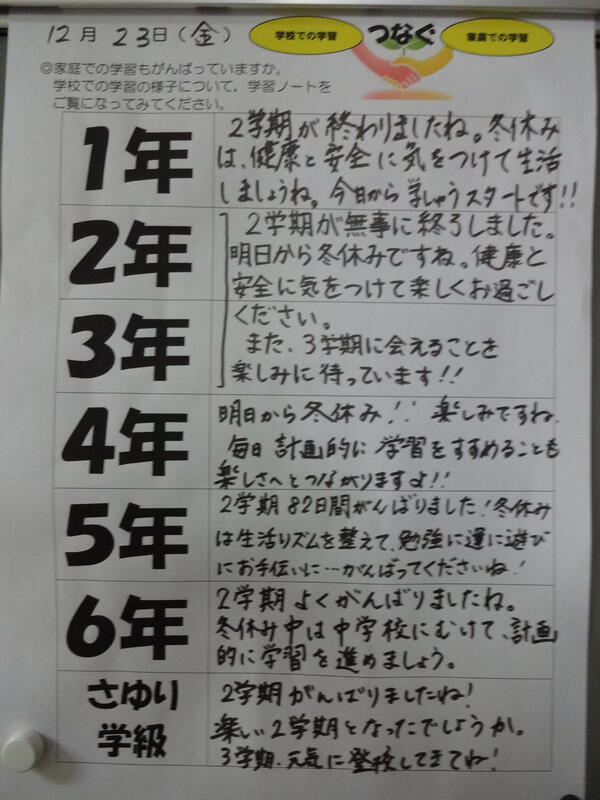 12月 23日(金)
学校での学習 つなぐ 家庭での学習
◎家庭での学習もがんばっていますか。
学校での学習の様子について，学習ノートを
ご覧になってみてください。
1年
2学期が終わりましたね。冬休み
は、健康と安全に気をつけて生活
しましょうね。今日から学しゅうスタートです!!
2年
3年
2学期が無事に終了しました。
明日から冬休みですね。健康と
安全に気をつけて楽しくお過ごし
ください。
また、3学期に会えることを
楽しみに待っています!!
4年
明日から冬休み!! 楽しみですね。
毎日計画的に学習をすすめることも
楽しさへとつながりますよ!!
5年
2学期82日間がんばりました!冬休み
は生活リズムを整えて、勉強に運に遊び
にお手伝いに…がんばってくださいね!
6年
2学期よくがんばりましたね。
冬休み中は中学校にむけて、計画
的に学習を進めましょう。
さゆり
学級
2学期がんばりましたね!
楽しい2学期となったでしょうか。
3学期、元気に登校してきてね!